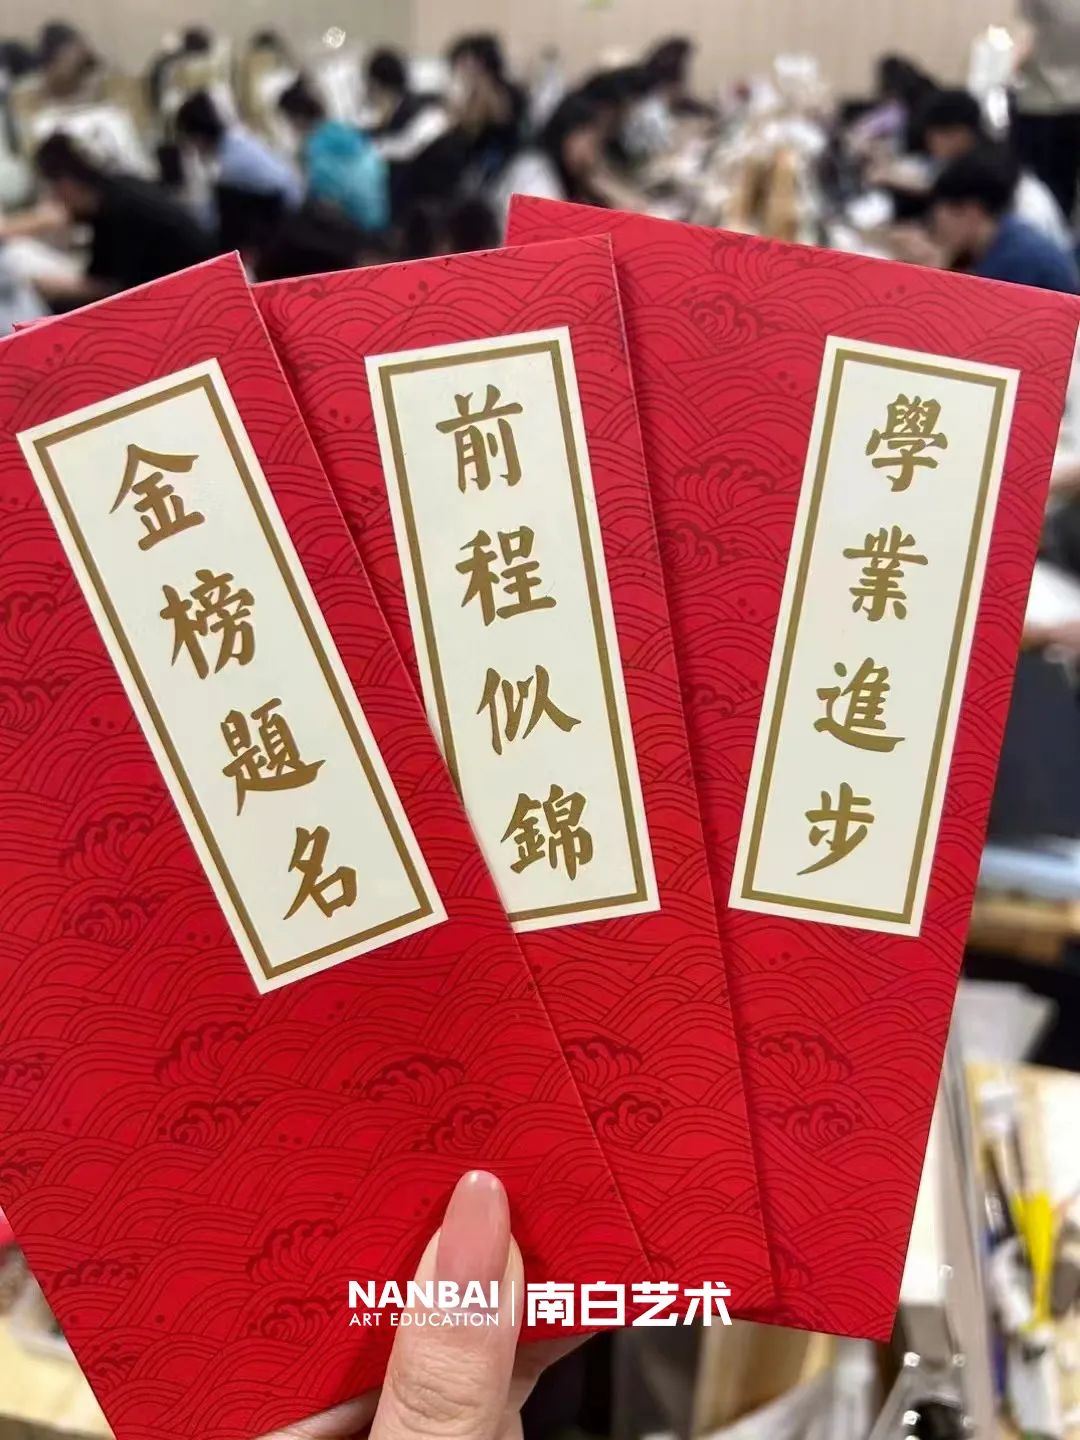 金榜題名
前程似錦
學業進步
NANBAI
ART EDUCATION
南白艺术